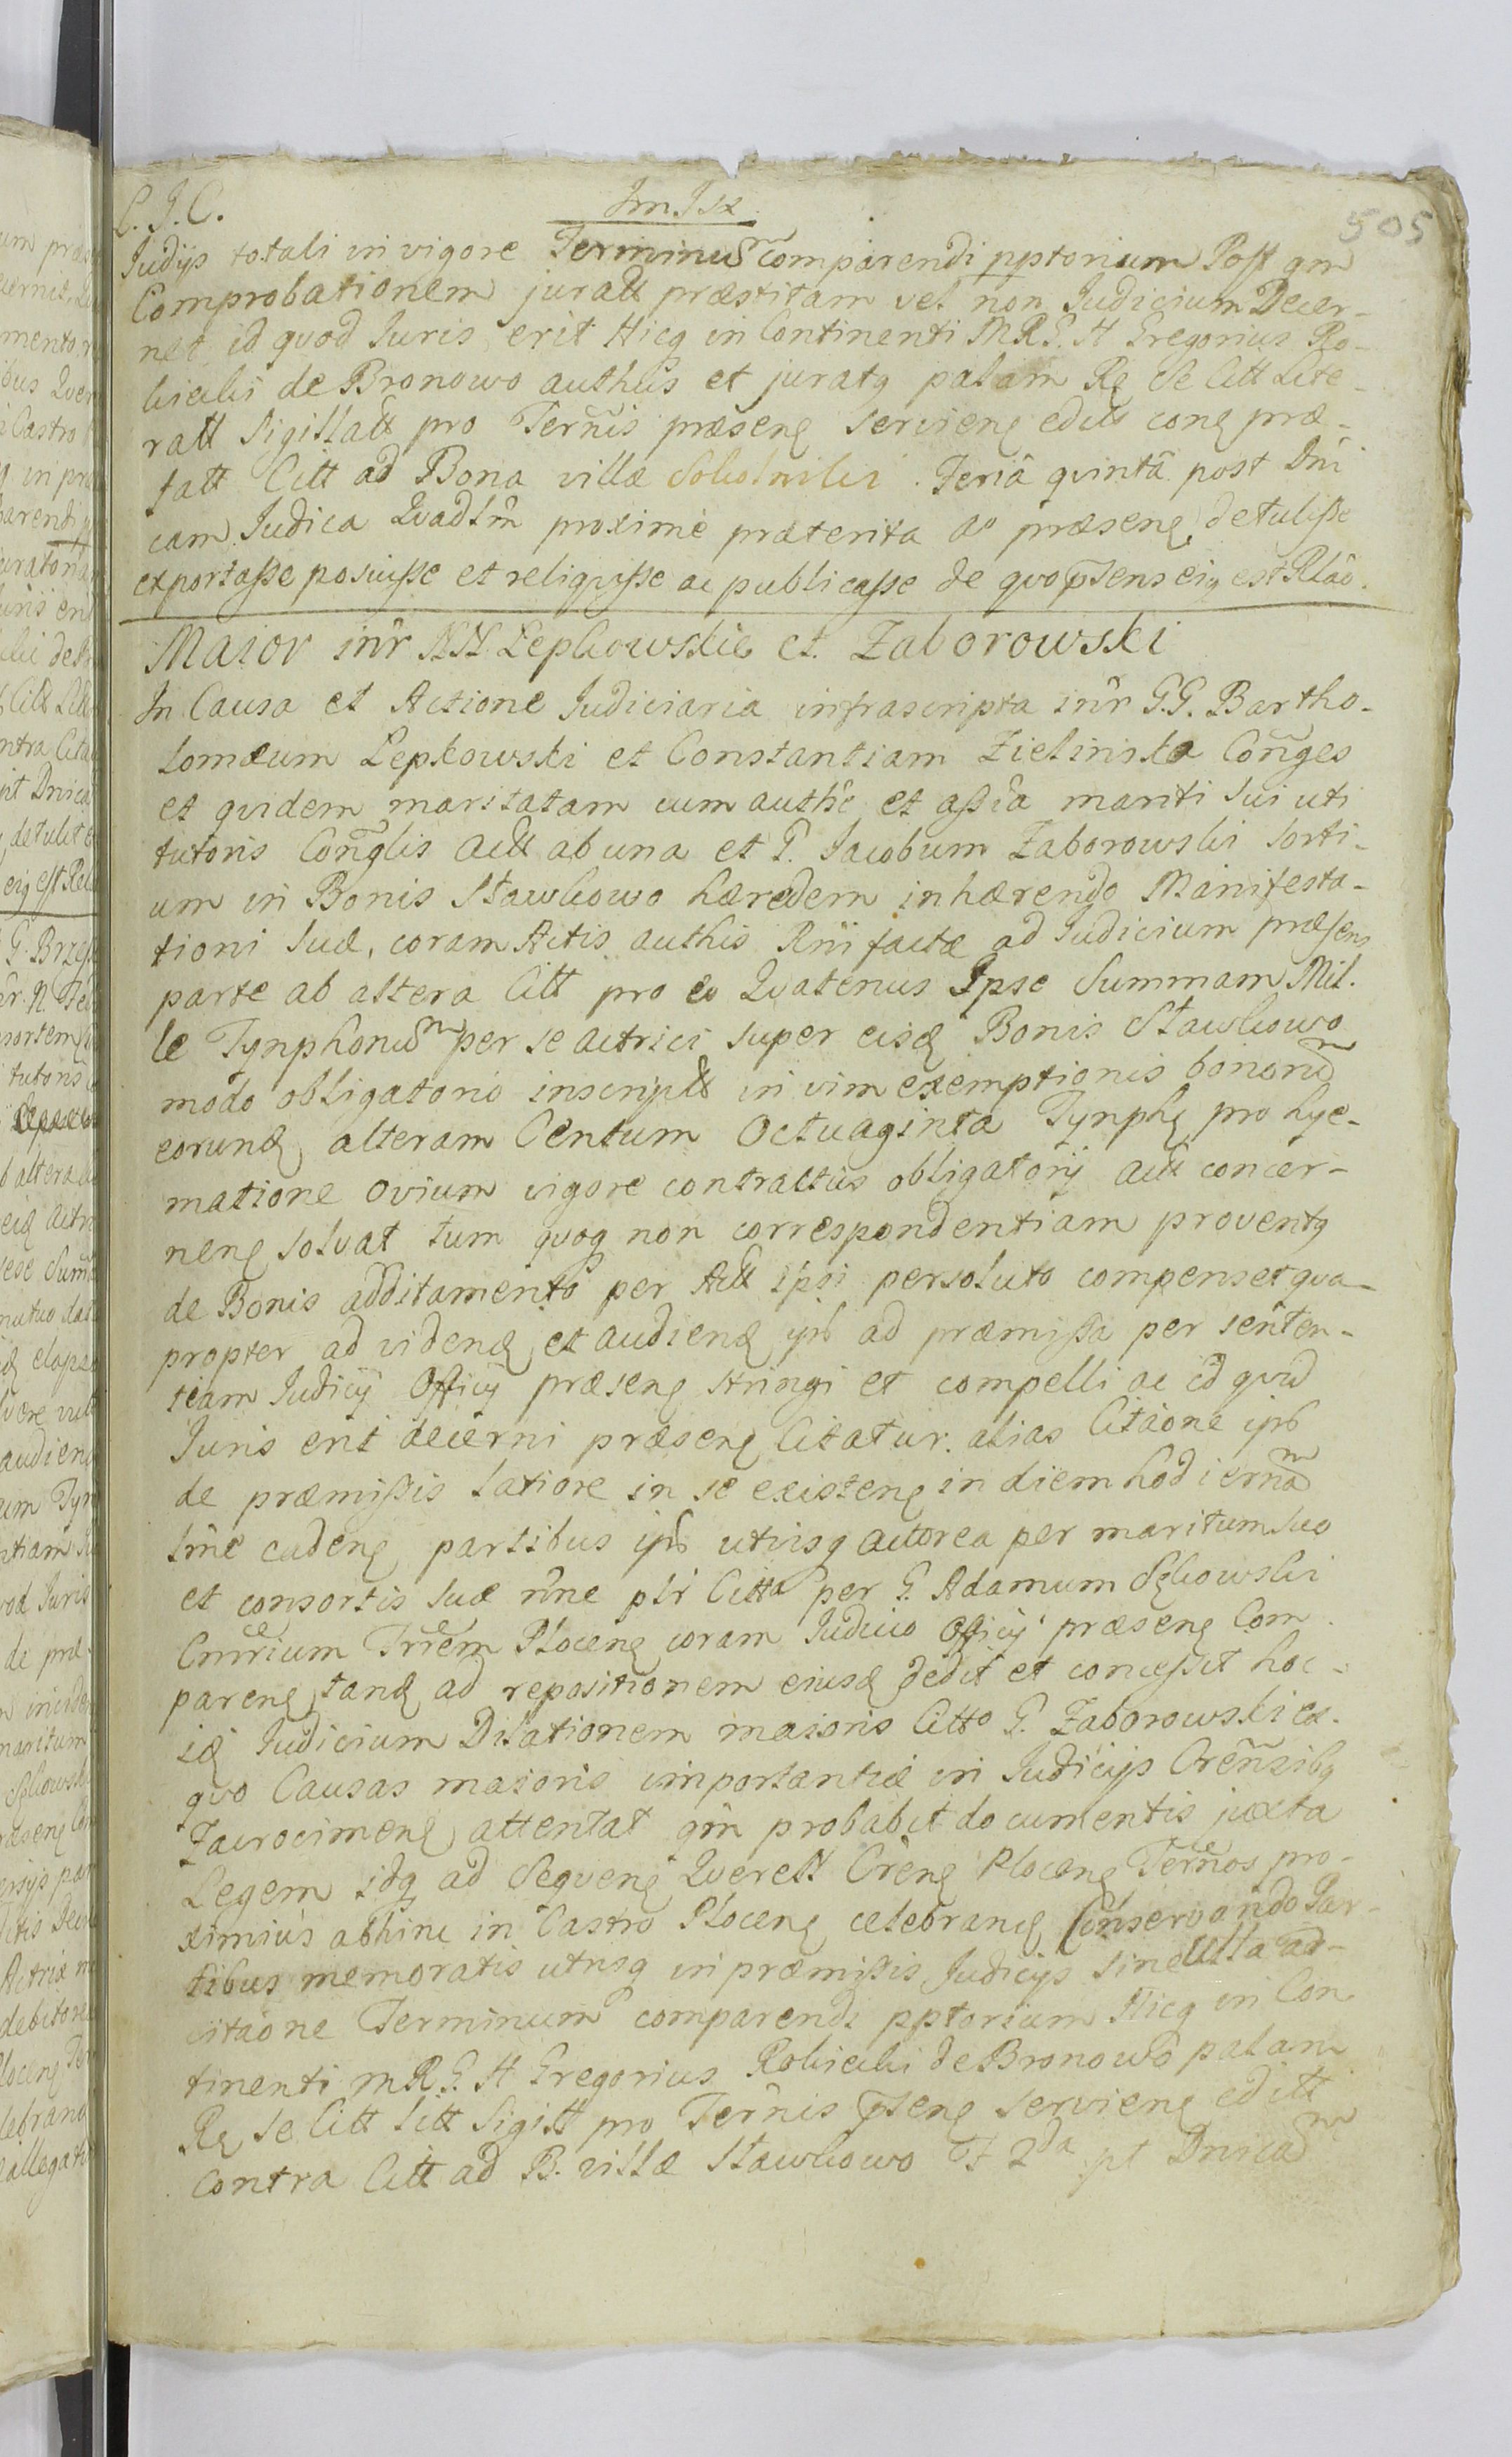 C. J. C.
505
Judijs totali in vigore Terminum comparendi pptorium Post qm
Comprobationem juratt præstitam vel non Judicium Decer-
net id quod Juris erit Hicq in Continenti MRG. H Gregorius Ro-
bicki de Bronowo authus et juratq palam Rq Se Citt Lite-
ratt Sigillatt pro Termis præsenq servienq edit conq præ-
fatt Citt ad Bona villæ Sokolniki. Feriâ qvintâ post Dni
cam Judica Qvadlm̃ proximè præterita aº præsenq detulisse
exportasse posuisse et reliqvisse ac publicasse de qvo pr̃sens eiq est Rlão.
Maior inr̃ NN. Lepkowskie et Zaborowski
In Causa et Actione Judiciaria infrascripta inr̃ G.G. Bartho-
lomæum Lepkowski et Constantiam Zielinska Conges
et qvidem maritatam cum authe et assia mariti sui uti
tutoris Conglis actt ab una et G. Jacobum Zaborowski sorti-
um in Bonis Stawkowo hæredem inhærendo Manifesta-
tioni suæ, coram Actis authis Rnii factæ ad Judicium præsens
parte ab altera Citt pro eo Qvatenus Ipse Summam Mil-
le Tynphonum per se actrici super eisd Bonis Stawkowo
modo obligatorio inscriptt in vim exemptionis bonorum
eorund, alteram Centum Octuaginta Tynphq pro hye-
matione ovium vigore contractus obligatorij actt concer-
nenq solvat tum qvoq non correspondentiam proventq
de Bonis additamento per Actt ipsi persoluto compenset qva-
propter ad vidend et audiend ipb ad præmissa per senten-
tiam Judicij Officij præsenq stringi et compelli ac id qvid
Juris erit decerni præsenq Citatur. alias Citãone ipb
de præmissis latiore in se existenq in diem hodiernam
lme cadenq partibus ipb utrisq actorea per maritum suo
et consortis suæ nñe plr Citta per G. Adamum Sękowski
Cmr̃rium Trr̃em Plocenq coram Judicio Officij præsenq Com
parenq tand ad repositionem eiusd dedit et concessit hoc-
id Judicium Dilationem maioris Citto G. Zaborowski ex-
qvo Causas maioris importantiæ in Judicijs Crensibq
Zacrocimenq attentat qm̃ probabit documentis juxta
Legem idq ad Seqvenq Qverell Crenq Plocenq Termos pro-
ximius abhinc in Castro Plocenq celebrand Conservando Par-
tibus memoratis utrisq in præmissis Judicijs sine ulla ad-
citãone Terminum comparendi pptorium Hicq in Con
tinenti MRG. H Gregorius Robicki de Bronowo palam
Rq se Citt Litt Sigitt pro Termis pr̃senq servienq editt
contra Citt ad B. villæ Stawkowo F 2da pt Dnicam